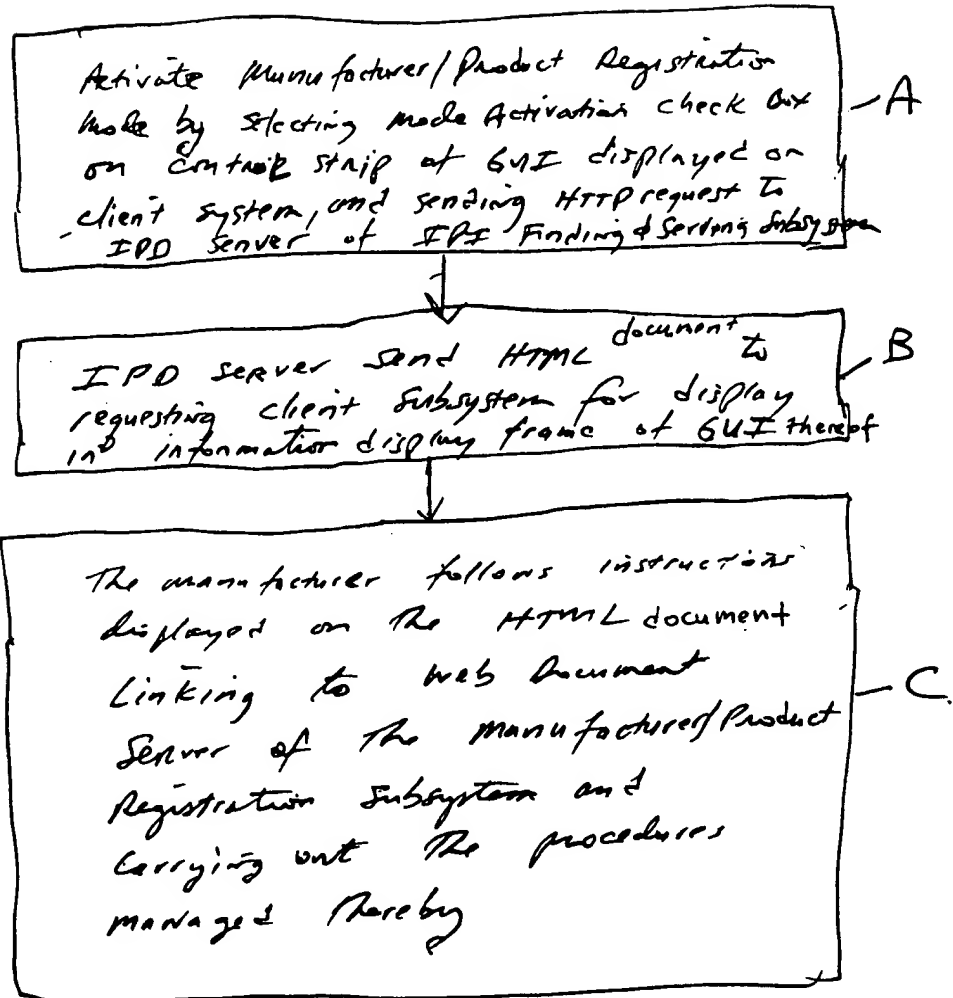 Activate Manufacturer/Product Registration
Mode by selecting mode Activation check Box
on control strip of GUI displayed on
client system, and sending HTTP request to
IPD server of IPI Finding & Serving Subsystem
A
IPD server send HTML document to
requesting client subsystem for display
in information display frame of GUI thereof
B
The manufacturer follows instructions
displayed on the HTML document
Linking to web Document
Server of the Manufacturer/Product
Registration Subsystem and
Carrying out the procedures
managed thereby
C.